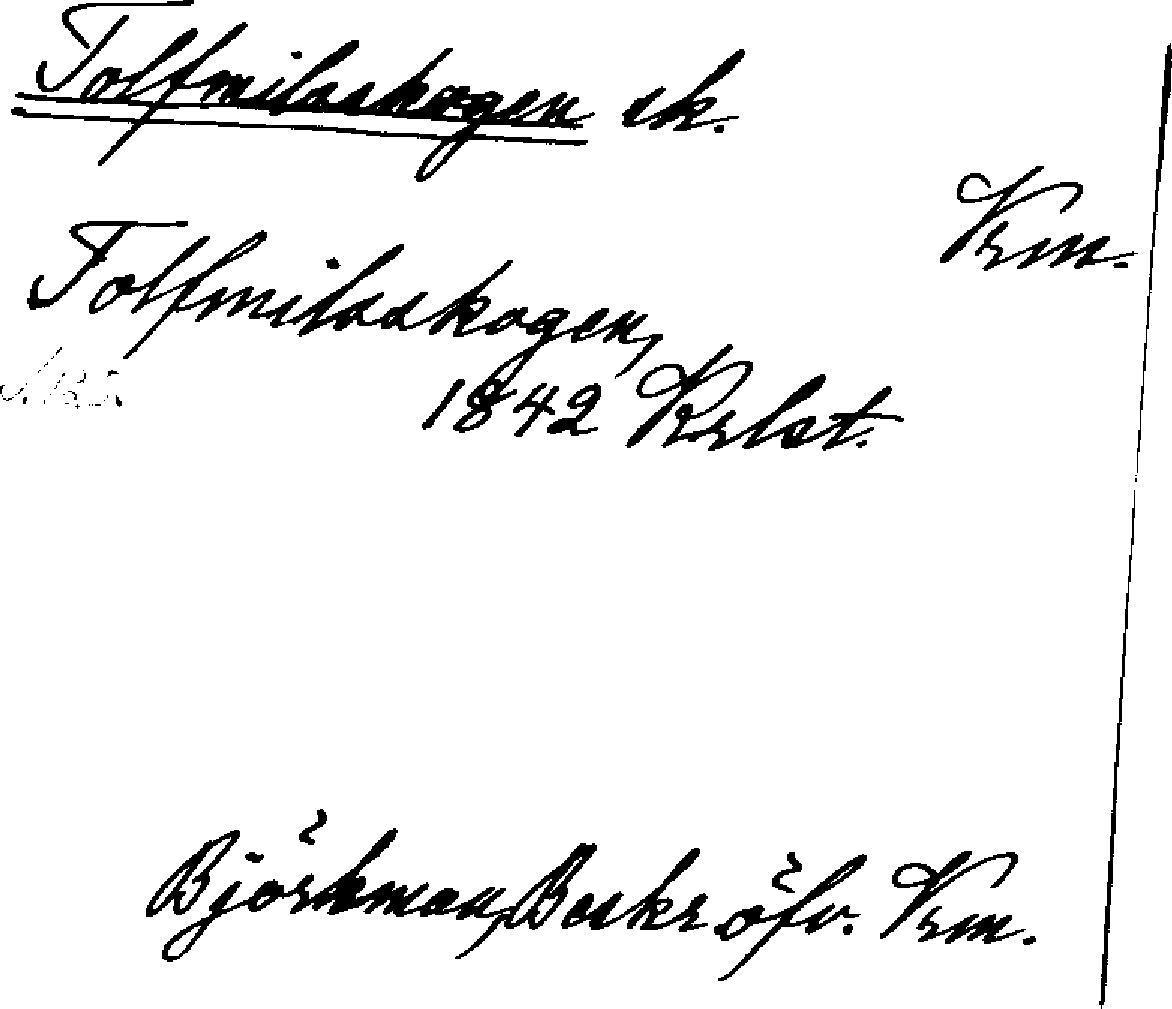 Tolfmilaskogen sk.
Vrm.
Tolfmilaskogen,
1842 Krlst.
Björkman, Beskr. öfv. Vrm.